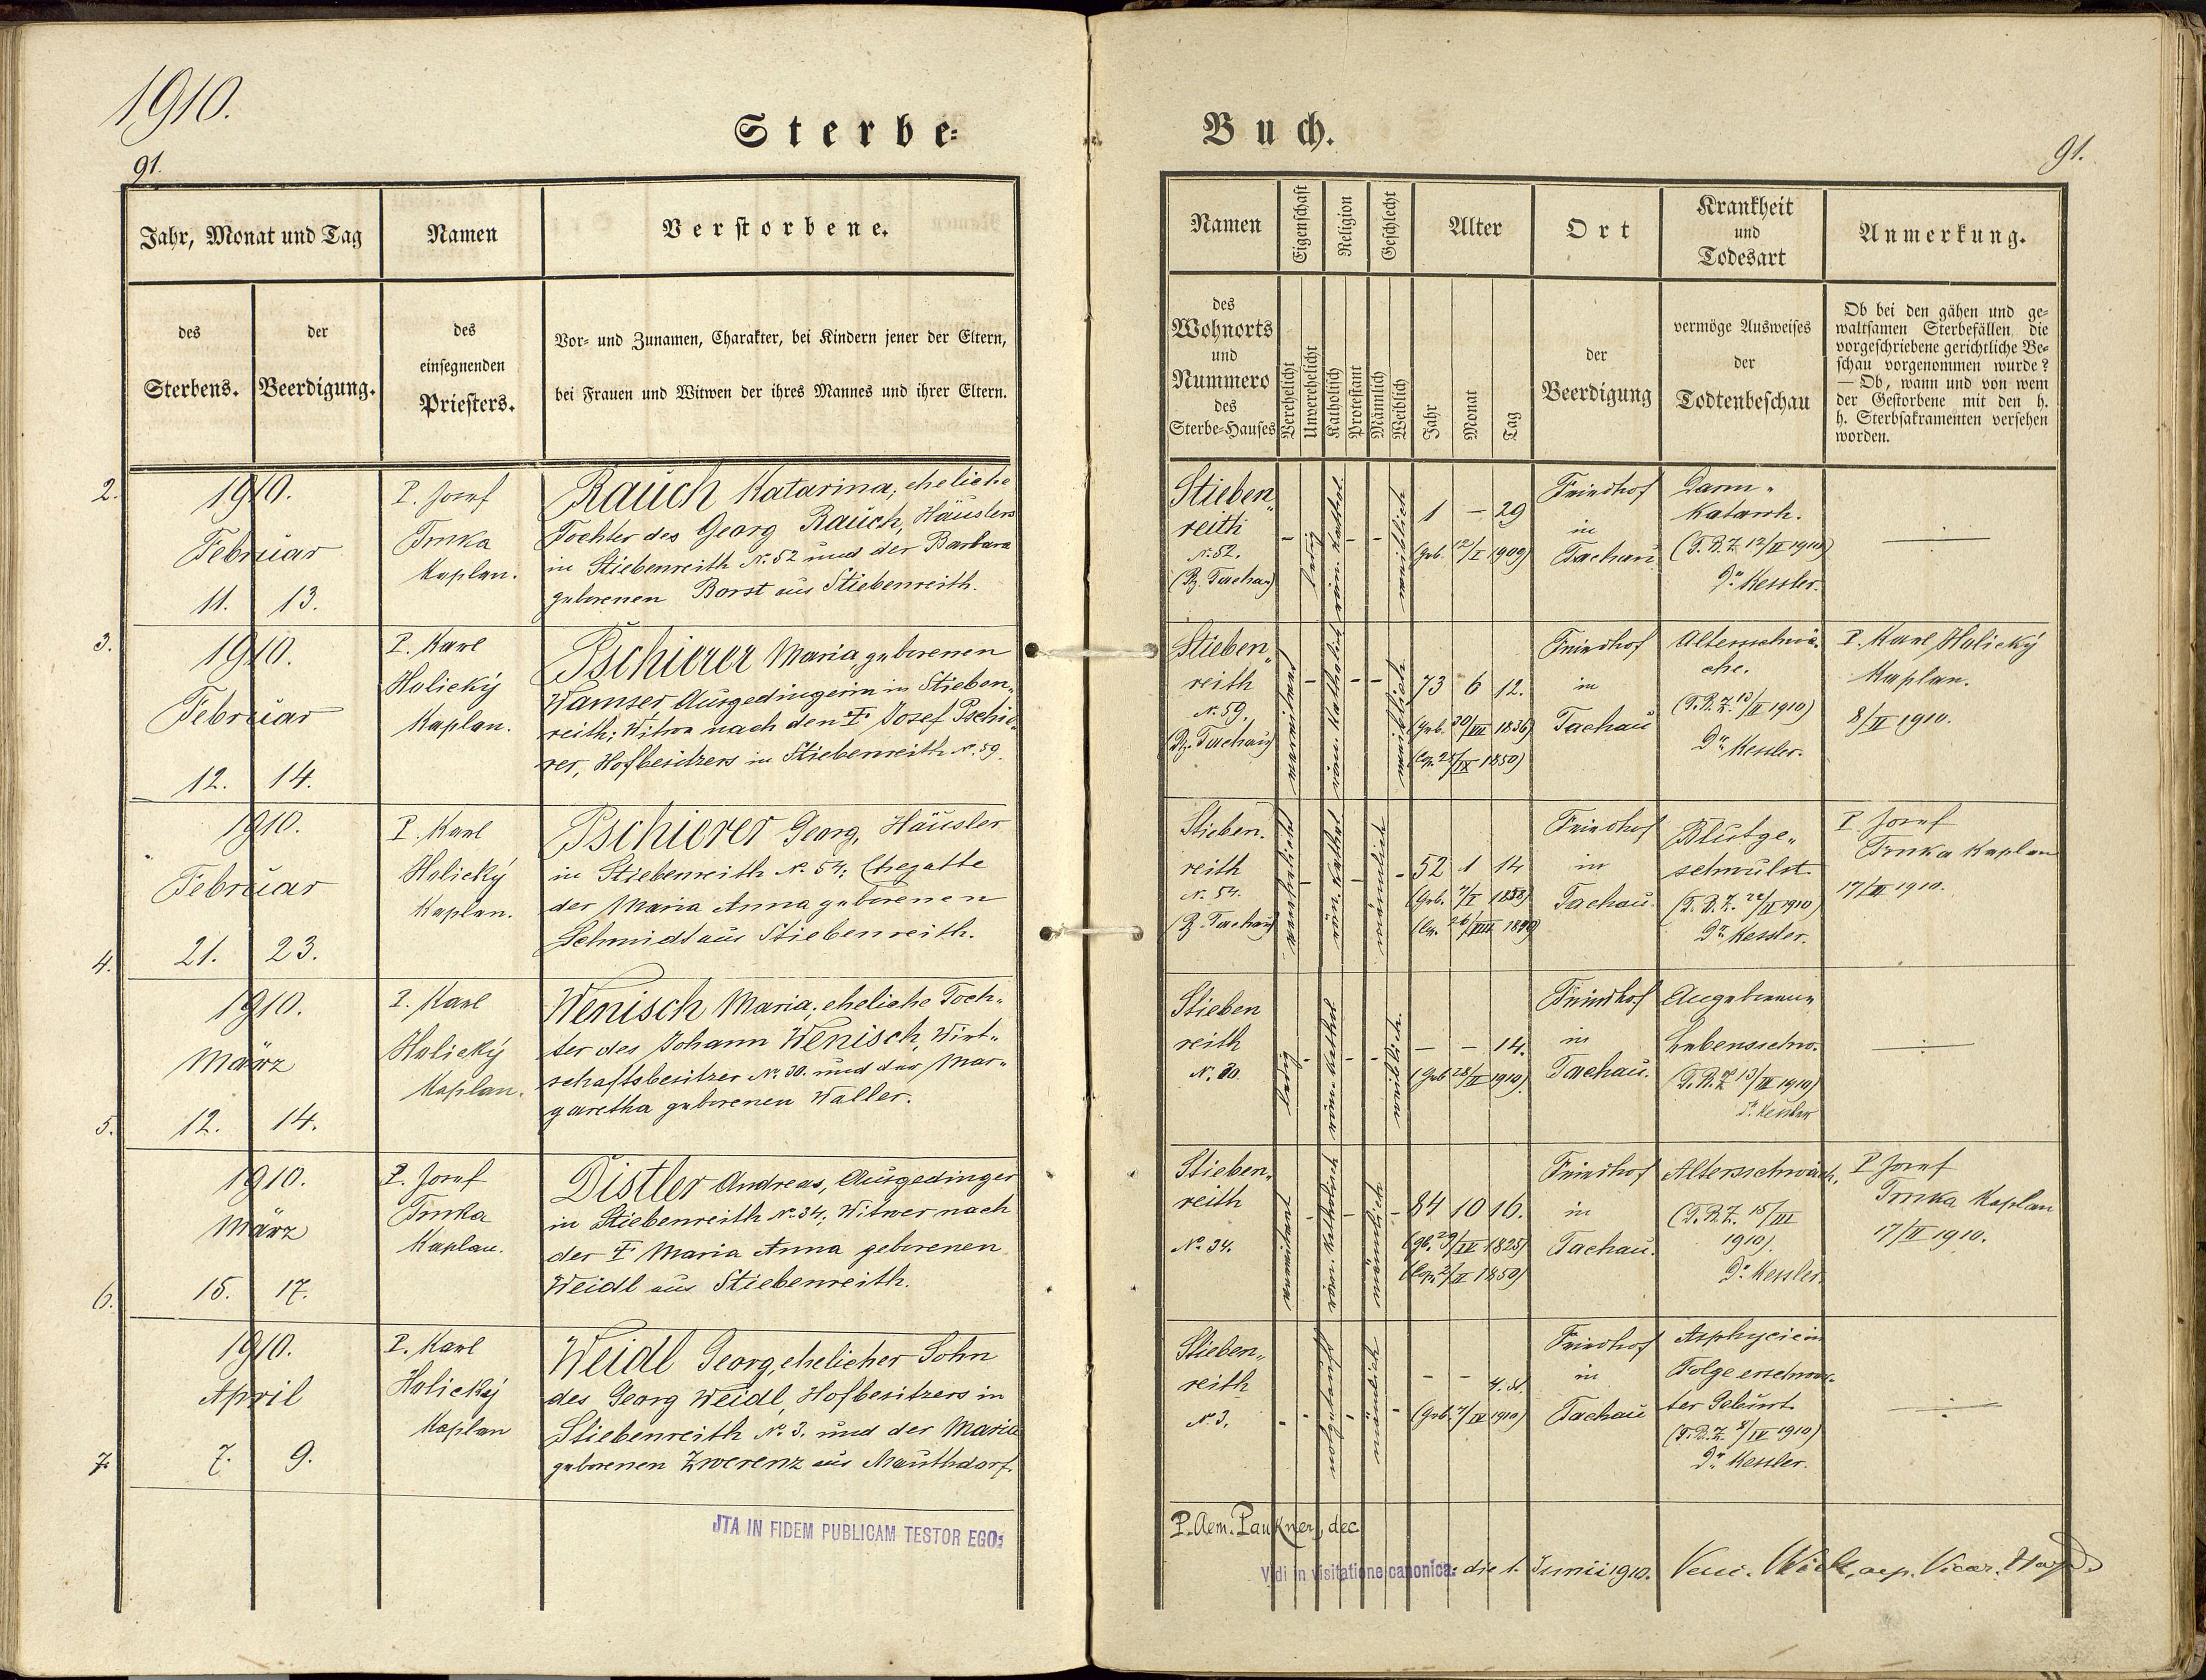 1910.
91.
Sterbe-
Buch.
91.
Jahr, Monat und Tag
Namen
Verstorbene.
des
Sterbens.
der
Beerdigung.
des
einsegnenden
Priesters.
Vor- und Zunamen, Charakter, bei Kindern jener der Eltern,
bei Frauen und Witwen der ihres Mannes und ihrer Eltern.
Namen
Eigenschaft
Religion
Geschlecht
Alter
Ort
Krankheit
und
Todesart
Anmerkung.
des
Wohnorts
und
Nummero
des
Sterbe-Hauses
Verehelicht
Unverehelicht
Katholisch
Protestant
Männlich
Weiblich
Jahr
Monat
Tag
der
Beerdigung
vermöge Ausweises
der
Todtenbeschau
Ob bei den gähen und ge-
waltsamen Sterbefällen die
vorgeschriebene gerichtliche Be-
schau vorgenommen wurde?
— Ob, wann und von wem
der Gestorbene mit den h.
h. Sterbsakramenten versehen
worden.
2.
1910.
Februar
11. 13.
P. Josef
Trnka
Kaplan.
Rauch Katarina, eheliche
Tochter des Georg Rauch, Häuslers
in Stiebenreith N. 52 und der Barbara
geborenen Borst aus Stiebenreith.
Stieben„
reith
N. 52.
(Bz. Tachau)
ledig
röm. kathol.
weiblich
1 – 29
(Geb. 12/I 1909)
Friedhof
in
Tachau
Darm„
katarrh.
(T.B.Z. 12/II 1910)
Dr. Kessler.
3.
1910.
Februar
12. 14.
P. Karl
Holický
Kaplan.
Pschierer Maria geborenen
Wamser Ausgedingerin in Stieben„
reith; Witwe nach den † Josef Pschie„
rer, Hofbesitzers in Stiebenreith N. 59.
Stieben„
reith
N. 59.
(Bz. Tachau)
verwitwet
röm. katholisch
weiblich
73 6 12.
Friedhof
in
Tachau
Altersschwä„
che.
(T.B.Z. 13/II 1910)
Dr. Kessler.
P. Karl Holický
Kaplan.
8/II 1910.
4.
1910.
Februar
21. 23.
P. Karl
Holický
Kaplan.
Pschierer Georg, Häusler
in Stiebenreith N. 54; Ehegatte
der Maria Anna geborenen
Schmidt aus Stiebenreith.
Stieben.
reith
N. 54.
(Bz. Tachau)
verehelicht
röm. kathol
männlich
52 1 14
(Geb. 7/I 1858)
Friedhof
in
Tachau.
Blutge„
schwulst.
(T.B.Z. 22/II 1910)
Dr. Kessler.
P. Josef
Trnka Kaplan
17/II 1910.
5.
1910.
März
12. 14.
P. Karl
Holický
Kaplan.
Wenisch Maria, eheliche Toch„
ter des Johann Wenisch, Wirt„
schaftsbesitzer N. 30. und der Mar„
garetha geborenen Waller.
Stieben
reith
N. 30.
ledig
röm. kathol
weiblich.
– – 14.
(Geb 28/II 1910)
Friedhof
in
Tachau.
Angeborene
Lebensschw.
(T.B.Z. 13/III 1910)
Dr. Kessler
6.
1910.
März
15. 17.
P. Josef
Trnka
Kaplan.
Distler Andreas, Ausgedinger
in Stiebenreith N. 34; Witwer nach
der † Maria Anna geborenen
Weidl aus Stiebenreith.
Stieben„
reith
No. 34.
verwitwet
röm. katholisch
männlich
84 10 16.
(gb. 29/IV 1825)
Friedhof
in
Tachau.
Altersschwäch.
(T.B.Z. 15/III
1910).
Dr. Kessler.
P. Josef
Trnka Kaplan
17/II 1910.
7.
1910.
April
7. 9.
P. Karl
Holický
Kaplan
Weidl Georg, ehelicher Sohn
des Georg Weidl, Hofbesitzers in
Stiebenreith No. 3. und der Maria
geborenen Zwerenz aus Mauthdorf.
Stieben„
reith
No. 3.
notgetauft
männlich
– – 4. St.
(Geb. 7/IV 1910)
Friedhof
in
Tachau
Asphyxie in
Folge erschwer-
ter Geburt.
(T.B.Z. 8/IV 1910)
Dr. Kessler.
JTA IN FIDEM PUBLICAM TESTOR EGO:
P. Aem. Paukner, dec
Vidi in visitatione canonica: die 1. Junii 1910.